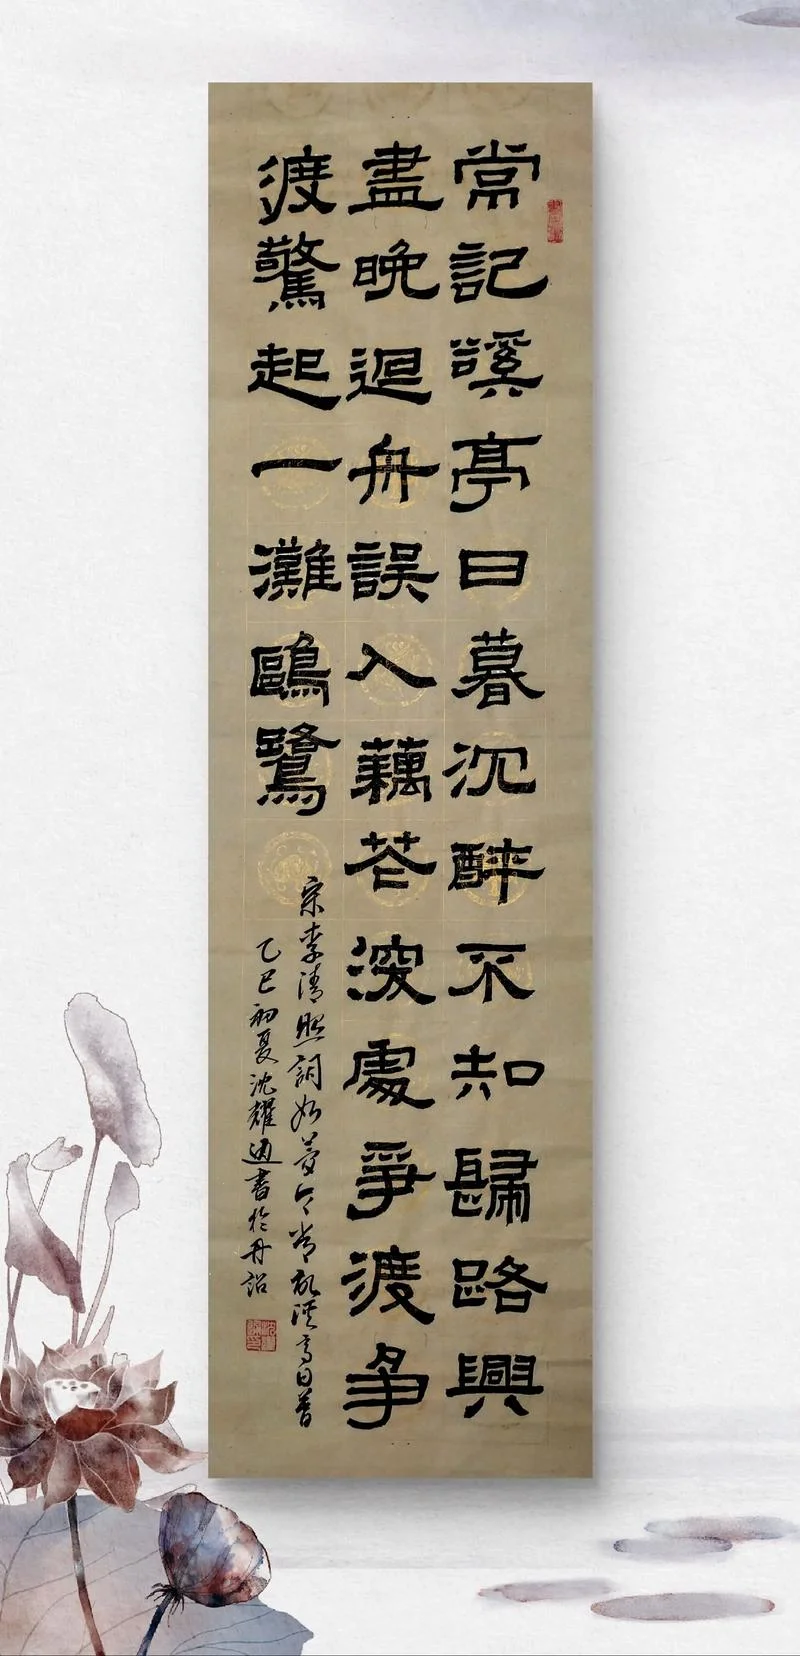 常記谿亭日暮沉醉不知歸路興
盡晚迴舟誤入藕花深處爭渡爭
渡驚起一灘鷗鷺
宋李清照詞如夢令常記溪亭日暮
乙巳初夏沈耀迪書於丹詔